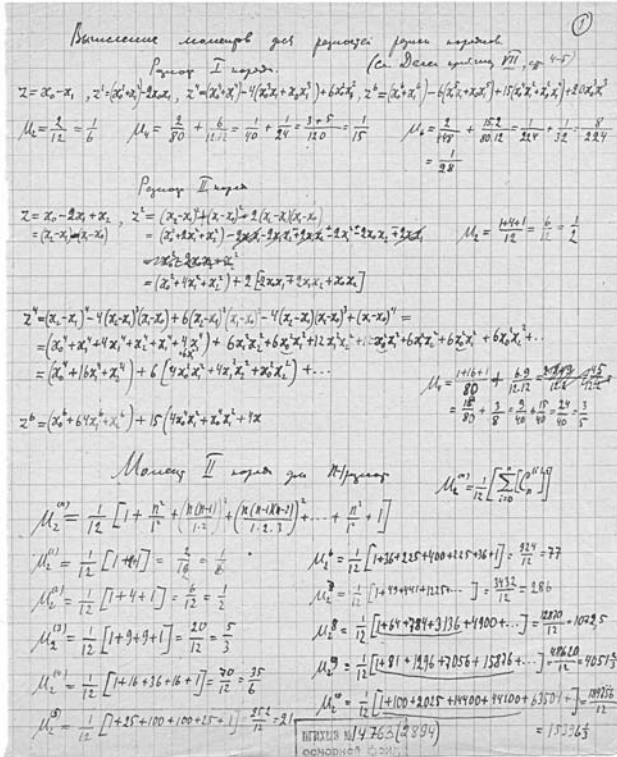 ①
Вычисление моментов для разностей разных порядков.
Разност I порядк. (См. VII, стр. 4-5)
z = x₀-x₁, z² = (x₀²+x₁²)-2x₀x₁, z⁴ = (x₀⁴+x₁⁴)-4(x₀³x₁+x₀x₁³)+6x₀²x₁², z⁶ = (x₀⁶+x₁⁶)-6(x₀⁵x₁+x₀x₁⁵)+15(x₀⁴x₁²+x₀²x₁⁴)+20x₀³x₁³
M₂ = 2/12 = 1/6 M₄ = 2/80 + 6/12.12 = 1/40 + 1/24 = 3+5/120 = 1/15 M₆ = 2/448 + 15.2/80.12 = 1/224 + 1/32 = 8/224
= 1/28
Разност II порядк
z = x₀-2x₁+x₂, z² = (x₂-x₁)²+(x₁-x₀)²-2(x₂-x₁)(x₁-x₀)
= (x₂-x₁)-(x₁-x₀)
M₂ = 1+4+1/12 = 6/12 = 1/2
= (x₀²+4x₁²+x₂²)+2[2x₀x₁+2x₁x₂+x₀x₂]
z⁴ = (x₂-x₁)⁴-4(x₂-x₁)³(x₁-x₀)+6(x₂-x₁)²(x₁-x₀)²-4(x₂-x₁)(x₁-x₀)³+(x₁-x₀)⁴ =
= (x₀⁴+16x₁⁴+x₂⁴)+6[4x₀²x₁²+4x₁²x₂²+x₀²x₂²]+...
M₄ = 1+16+1/80 + 6.9/12.12
= 18/80 + 3/8 = 9/40 + 15/40 = 24/40 = 3/5
z⁶ = (x₀⁶+64x₁⁶+x₂⁶)+15(4x₀⁴x₁²+x₀⁴x₂²+4x
Момент II порядк для n разност
M₂⁽ⁿ⁾ = 1/12 [∑ᵢ₌₀ⁿ [Cₙ⁽ⁱ⁾]²]
M₂⁽ⁿ⁾ = 1/12 [1 + n²/1² + (n(n-1)/1·2)² + (n(n-1)(n-2)/1·2·3)² + ... + n²/1² + 1]
M₂⁽¹⁾ = 1/12 [1+1] = 2/12 = 1/6
M₂⁽²⁾ = 1/12 [1+4+1] = 6/12 = 1/2
M₂⁽³⁾ = 1/12 [1+9+9+1] = 20/12 = 5/3
M₂⁽⁴⁾ = 1/12 [1+16+36+16+1] = 70/12 = 35/6
M₂⁽⁵⁾ = 1/12 [1+25+100+100+25+1] = 252/12 = 21
M₂⁶ = 1/12 [1+36+225+400+225+36+1] = 924/12 = 77
M₂⁷ = 1/12 [1+49+441+1225+... ] = 3432/12 = 286
M₂⁸ = 1/12 [1+64+784+3136+4900+...] = 12870/12 = 1072,5
M₂⁹ = 1/12 [1+81+1296+7056+15876+...] = 48620/12 = 4051⅔
M₂¹⁰ = 1/12 [1+100+2025+14400+44100+63504+ ] = 184756/12
= 15396⅓
№14.763(2894)
ОСНОВНОЙ ФОНД